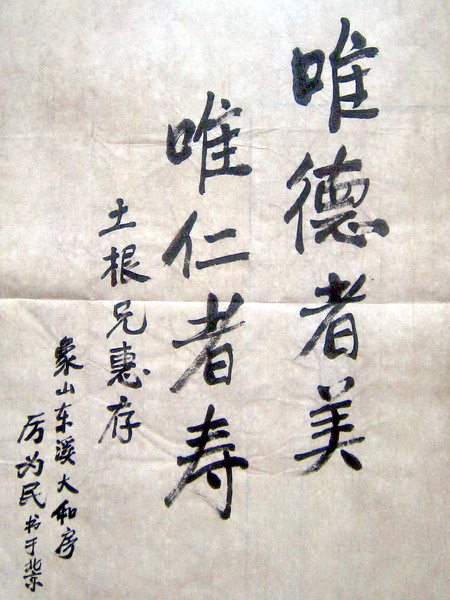 唯德者美
唯仁者寿
土根兄惠存
象山东溪大和房
厉为民书于北京